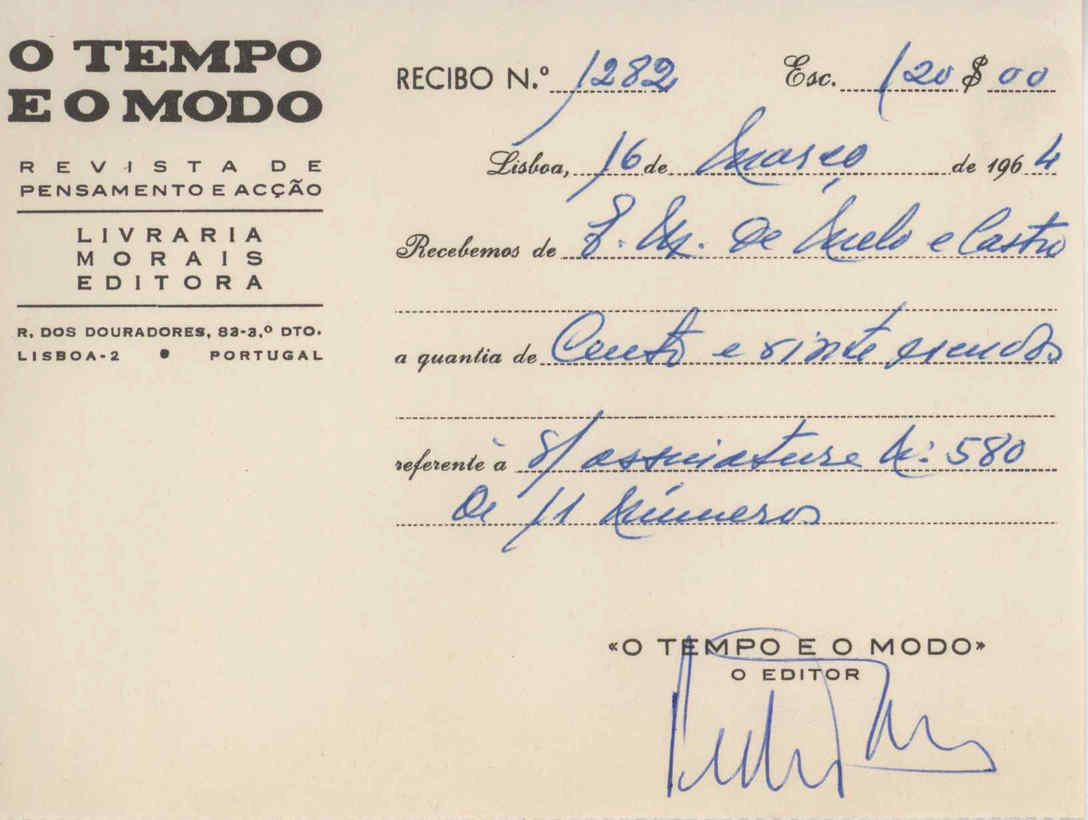 O TEMPO
E O MODO
REVISTA DE
PENSAMENTO E ACÇÃO
LIVRARIA
MORAIS
EDITORA
R. DOS DOURADORES, 83-3.º DTO.
LISBOA-2 • PORTUGAL
RECIBO N.º 1282 Esc. 120 $ 00
Lisboa, 16 de Março de 1964
Recebemos de E. M. de Melo e Castro
a quantia de Cento e vinte escudos
referente à s/ assinatura N.º 580
de 11 números
«O TEMPO E O MODO»
O EDITOR